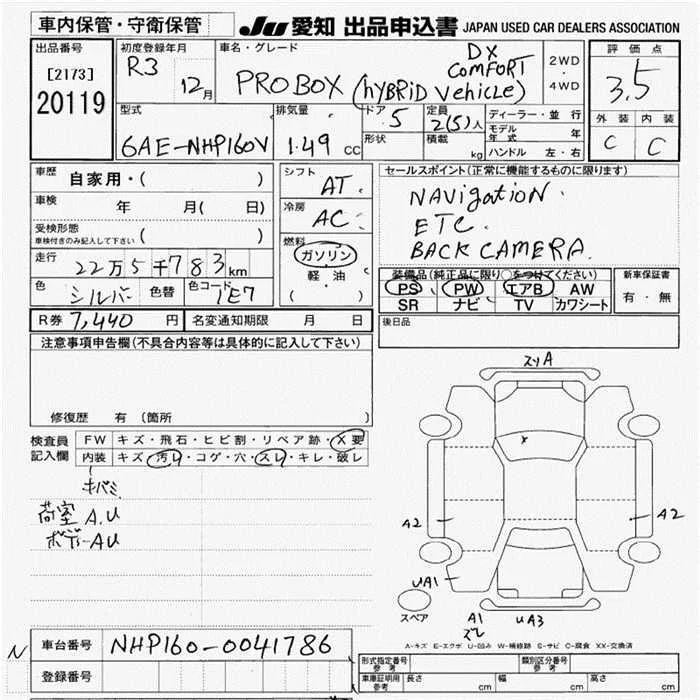 車内保管・守衛保管
JU 愛知 出品申込書 JAPAN USED CAR DEALERS ASSOCIATION
出品番号
[2173]
20119
初度登録年月
R3 12月
車名・グレード
PROBOX (HYBRiD Vehicle)
DX
COMFORT
2WD
・
4WD
評価点
3.5
外装 内装
C C
型式
6AE-NHP160V
排気量
1.49 CC
ドア
5
形状
定員
2(5)人
積載 kg
ディーラー・並行
モデル年式 年
ハンドル 左・右
車歴 自家用・( )
車検 年 月( 日)
受検形態
車検付きのみ記入して下さい ( )
走行 22万5千783km
色 シルバー 色替 色コード 1E7
シフト
AT
冷房
AC
燃料
ガソリン
軽・油
( )
セールスポイント(正常に機能するものに限ります)
NAVigatioN.
ETC.
BACK CAMERA.
装備品(純正品に限り○をつけてください)
PS PW エアB AW
SR ナビ TV カワシート
新車保証書
有・無
R券 7,440 円 名変通知期限 月 日
後日品
注意事項申告欄(不具合内容等は具体的に記入して下さい)
修復歴 有 (箇所
検査員
記入欄
FW キズ・飛石・ヒビ割・リペア跡・X要
内装 キズ・汚れ・コゲ・穴・スレ・キレ・破レ
キバミ
荷室 A.U
ボデーAU
スリA
x
A2
A2
UA1
スペア
A1
ズレ
UA3
A-キズ E-エクボ U-凹み W-補修跡 S-サビ C-腐食 XX-交換済
N 車台番号 NHP160-0041786
登録番号
形式指定番号
参考
類別区分番号
参考
車庫証明用
参考
長さ cm 幅 cm 高さ cm